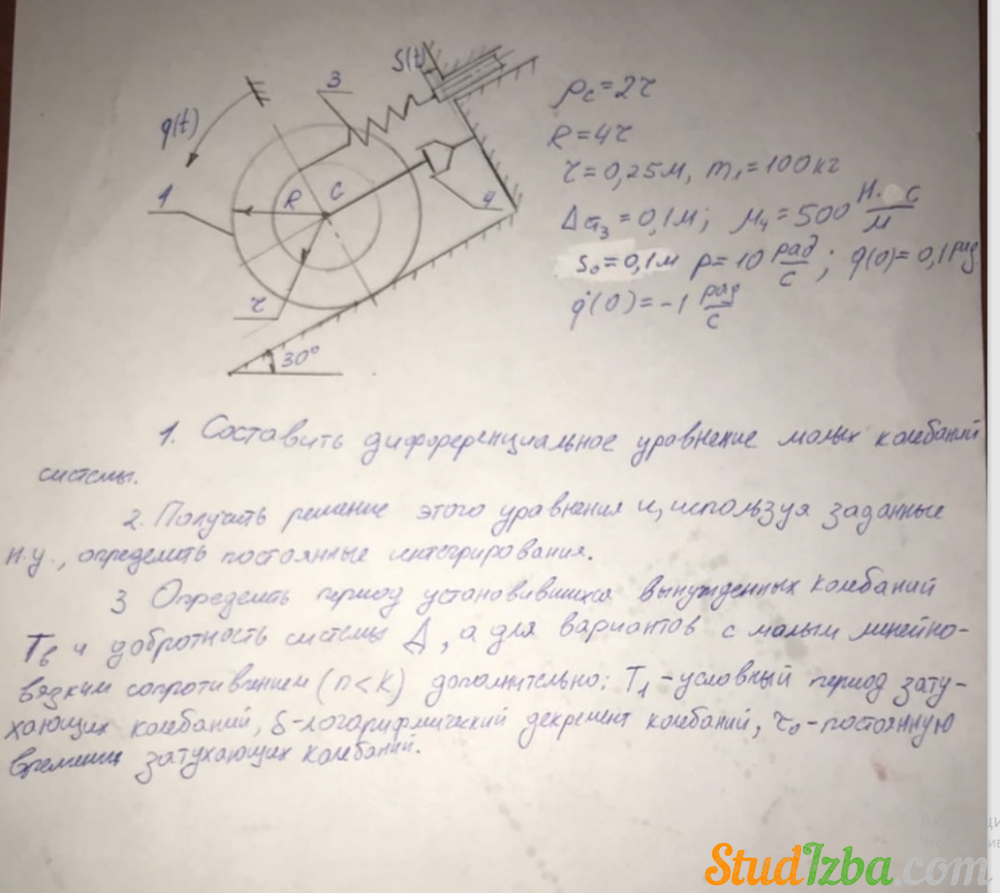 S(t)
3
ρc=2r
q(t)
R=4r
1
R
C
r=0,25м, m₁=100кг
4
Δст₃=0,1м; μ₄=500 Н·с/м
S₀=0,1м p=10 рад/с; q(0)=0,1рад
r
q̇(0)=-1 рад/с
30°
1. Составить дифференциальное уравнение малых колебаний
системы.
2. Получить решение этого уравнения и, используя заданные
н.у., определить постоянные интегрирования.
3 Определить период установившихся вынужденных колебаний
Tв и добротность системы Д, а для вариантов с малым линейно-
вязким сопротивлением (n<k) дополнительно: T₁-условный период зату-
хающих колебаний, δ-логарифмический декремент колебаний, τ₀-постоянную
времени затухающих колебаний.
StudIzba.com